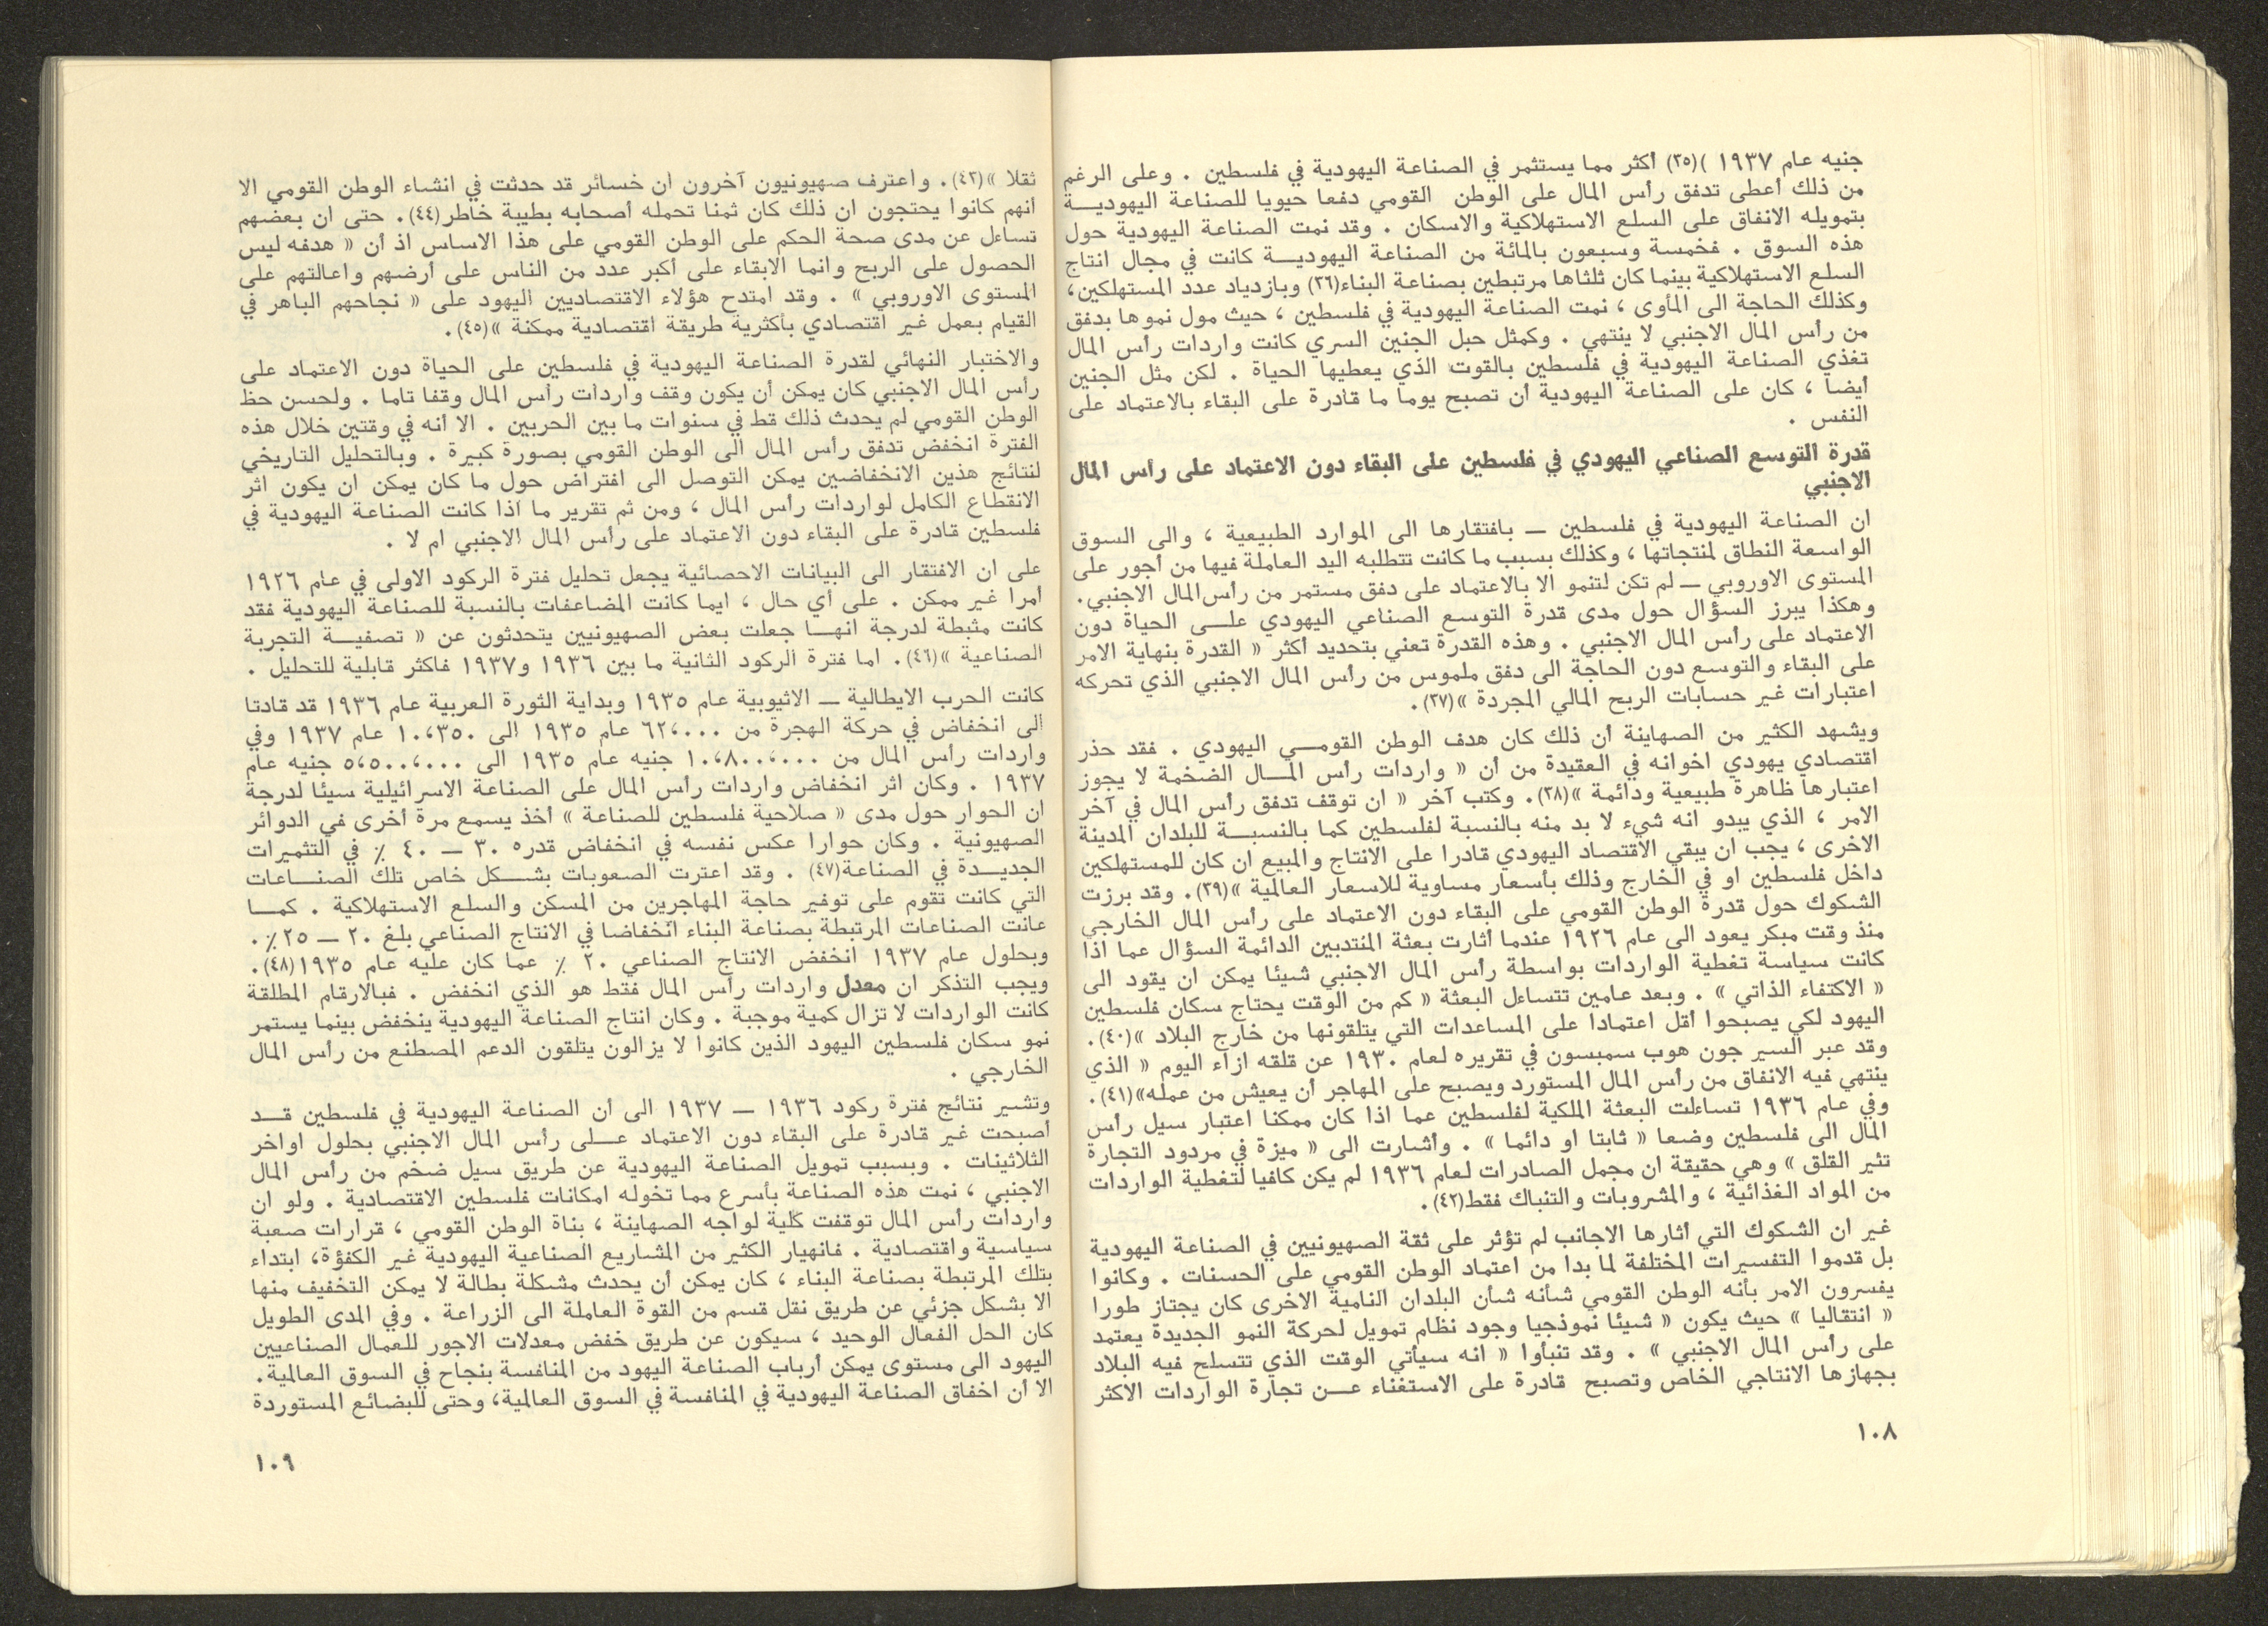 جنيه عام ١٩٣٧ )(٣٥) أكثر مما يستثمر في الصناعة اليهودية في فلسطين . وعلى الرغم
من ذلك أعطى تدفق رأس المال على الوطن القومي دفعا حيويا للصناعة اليهوديـــة
بتمويله الانفاق على السلع الاستهلاكية والاسكان . وقد نمت الصناعة اليهودية حول
هذه السوق . فخمسة وسبعون بالمائة من الصناعة اليهوديـــة كانت في مجال انتاج
السلع الاستهلاكية بينما كان ثلثاها مرتبطين بصناعة البناء(٣٦) وبازدياد عدد المستهلكين،
وكذلك الحاجة الى المأوى ، نمت الصناعة اليهودية في فلسطين ، حيث مول نموها بدفق
من رأس المال الاجنبي لا ينتهي . وكمثل حبل الجنين السري كانت واردات رأس المال
تغذي الصناعة اليهودية في فلسطين بالقوت الذي يعطيها الحياة . لكن مثل الجنين
أيضا ، كان على الصناعة اليهودية أن تصبح يوما ما قادرة على البقاء بالاعتماد على
النفس .
قدرة التوسع الصناعي اليهودي في فلسطين على البقاء دون الاعتماد على رأس المال
الاجنبي
ان الصناعة اليهودية في فلسطين ــ بافتقارها الى الموارد الطبيعية ، والى السوق
الواسعة النطاق لمنتجاتها ، وكذلك بسبب ما كانت تتطلبه اليد العاملة فيها من أجور على
المستوى الاوروبي ــ لم تكن لتنمو الا بالاعتماد على دفق مستمر من رأس المال الاجنبي.
وهكذا يبرز السؤال حول مدى قدرة التوسع الصناعي اليهودي علـــى الحياة دون
الاعتماد على رأس المال الاجنبي . وهذه القدرة تعني بتحديد أكثر « القدرة بنهاية الامر
على البقاء والتوسع دون الحاجة الى دفق ملموس من رأس المال الاجنبي الذي تحركه
اعتبارات غير حسابات الربح المالي المجردة »(٣٧).
ويشهد الكثير من الصهاينة أن ذلك كان هدف الوطن القومـــي اليهودي . فقد حذر
اقتصادي يهودي اخوانه في العقيدة من أن « واردات رأس المـــال الضخمة لا يجوز
اعتبارها ظاهرة طبيعية ودائمة »(٣٨). وكتب آخر « ان توقف تدفق رأس المال في آخر
الامر ، الذي يبدو انه شيء لا بد منه بالنسبة لفلسطين كما بالنسبـــة للبلدان المدينة
الاخرى ، يجب ان يبقي الاقتصاد اليهودي قادرا على الانتاج والمبيع ان كان للمستهلكين
داخل فلسطين او في الخارج وذلك بأسعار مساوية للاسعار العالمية »(٣٩). وقد برزت
الشكوك حول قدرة الوطن القومي على البقاء دون الاعتماد على رأس المال الخارجي
منذ وقت مبكر يعود الى عام ١٩٢٦ عندما أثارت بعثة المنتدبين الدائمة السؤال عما اذا
كانت سياسة تغطية الواردات بواسطة رأس المال الاجنبي شيئا يمكن ان يقود الى
« الاكتفاء الذاتي » . وبعد عامين تتساءل البعثة « كم من الوقت يحتاج سكان فلسطين
اليهود لكي يصبحوا أقل اعتمادا على المساعدات التي يتلقونها من خارج البلاد »(٤٠).
وقد عبر السير جون هوب سمبسون في تقريره لعام ١٩٣٠ عن قلقه ازاء اليوم « الذي
ينتهي فيه الانفاق من رأس المال المستورد ويصبح على المهاجر أن يعيش من عمله»(٤١).
وفي عام ١٩٣٦ تساءلت البعثة الملكية لفلسطين عما اذا كان ممكنا اعتبار سيل رأس
المال الى فلسطين وضعا « ثابتا او دائما » . وأشارت الى « ميزة في مردود التجارة
تثير القلق » وهي حقيقة ان مجمل الصادرات لعام ١٩٣٦ لم يكن كافيا لتغطية الواردات
من المواد الغذائية ، والمشروبات والتنباك فقط(٤٢).
غير ان الشكوك التي أثارها الاجانب لم تؤثر على ثقة الصهيونيين في الصناعة اليهودية
بل قدموا التفسيرات المختلفة لما بدا من اعتماد الوطن القومي على الحسنات . وكانوا
يفسرون الامر بأنه الوطن القومي شأنه شأن البلدان النامية الاخرى كان يجتاز طورا
« انتقاليا » حيث يكون « شيئا نموذجيا وجود نظام تمويل لحركة النمو الجديدة يعتمد
على رأس المال الاجنبي » . وقد تنبأوا « انه سيأتي الوقت الذي تتسلح فيه البلاد
بجهازها الانتاجي الخاص وتصبح قادرة على الاستغناء عـــن تجارة الواردات الاكثر
١٠٨
ثقلا »(٤٣). واعترف صهيونيون آخرون ان خسائر قد حدثت في انشاء الوطن القومي الا
أنهم كانوا يحتجون ان ذلك كان ثمنا تحمله أصحابه بطيبة خاطر(٤٤). حتى ان بعضهم
تساءل عن مدى صحة الحكم على الوطن القومي على هذا الاساس اذ أن « هدفه ليس
الحصول على الربح وانما الابقاء على أكبر عدد من الناس على أرضهم واعالتهم على
المستوى الاوروبي » . وقد امتدح هؤلاء الاقتصاديين اليهود على « نجاحهم الباهر في
القيام بعمل غير اقتصادي بأكثرية طريقة اقتصادية ممكنة »(٤٥).
والاختبار النهائي لقدرة الصناعة اليهودية في فلسطين على الحياة دون الاعتماد على
رأس المال الاجنبي كان يمكن أن يكون وقف واردات رأس المال وقفا تاما . ولحسن حظ
الوطن القومي لم يحدث ذلك قط في سنوات ما بين الحربين . الا أنه في وقتين خلال هذه
الفترة انخفض تدفق رأس المال الى الوطن القومي بصورة كبيرة . وبالتحليل التاريخي
لنتائج هذين الانخفاضين يمكن التوصل الى افتراض حول ما كان يمكن ان يكون اثر
الانقطاع الكامل لواردات رأس المال ، ومن ثم تقرير ما اذا كانت الصناعة اليهودية في
فلسطين قادرة على البقاء دون الاعتماد على رأس المال الاجنبي ام لا .
على ان الافتقار الى البيانات الاحصائية يجعل تحليل فترة الركود الاولى في عام ١٩٢٦
أمرا غير ممكن . على أي حال ، ايما كانت المضاعفات بالنسبة للصناعة اليهودية فقد
كانت مثبطة لدرجة انهـــا جعلت بعض الصهيونيين يتحدثون عن « تصفيـــة التجربة
الصناعية »(٤٦). اما فترة الركود الثانية ما بين ١٩٣٦ و١٩٣٧ فاكثر قابلية للتحليل .
كانت الحرب الايطالية ــ الاثيوبية عام ١٩٣٥ وبداية الثورة العربية عام ١٩٣٦ قد قادتا
الى انخفاض في حركة الهجرة من ٦٢،٠٠٠ عام ١٩٣٥ الى ١٠،٣٥٠ عام ١٩٣٧ وفي
واردات رأس المال من ١٠،٨٠٠،٠٠٠ جنيه عام ١٩٣٥ الى ٥،٥٠٠،٠٠٠ جنيه عام
١٩٣٧ . وكان اثر انخفاض واردات رأس المال على الصناعة الاسرائيلية سيئا لدرجة
ان الحوار حول مدى « صلاحية فلسطين للصناعة » أخذ يسمع مرة أخرى في الدوائر
الصهيونية . وكان حوارا عكس نفسه في انخفاض قدره ٣٠ ــ ٤٠ ٪ في التثميرات
الجديـــدة في الصناعة(٤٧) . وقد اعترت الصعوبات بشـــكل خاص تلك الصنـــاعات
التي كانت تقوم على توفير حاجة المهاجرين من المسكن والسلع الاستهلاكية . كمـــا
عانت الصناعات المرتبطة بصناعة البناء انخفاضا في الانتاج الصناعي بلغ ٢٠ ــ ٢٥٪.
وبحلول عام ١٩٣٧ انخفض الانتاج الصناعي ٢٠ ٪ عما كان عليه عام ١٩٣٥(٤٨).
ويجب التذكر ان معدل واردات رأس المال فقط هو الذي انخفض . فبالارقام المطلقة
كانت الواردات لا تزال كمية موجبة . وكان انتاج الصناعة اليهودية ينخفض بينما يستمر
نمو سكان فلسطين اليهود الذين كانوا لا يزالون يتلقون الدعم المصطنع من رأس المال
الخارجي .
وتشير نتائج فترة ركود ١٩٣٦ ــ ١٩٣٧ الى أن الصناعة اليهودية في فلسطين قـــد
أصبحت غير قادرة على البقاء دون الاعتماد عـــلى رأس المال الاجنبي بحلول اواخر
الثلاثينات . وبسبب تمويل الصناعة اليهودية عن طريق سيل ضخم من رأس المال
الاجنبي ، نمت هذه الصناعة بأسرع مما تخوله امكانات فلسطين الاقتصادية . ولو ان
واردات رأس المال توقفت كلية لواجه الصهاينة ، بناة الوطن القومي ، قرارات صعبة
سياسية واقتصادية . فانهيار الكثير من المشاريع الصناعية اليهودية غير الكفؤة، ابتداء
بتلك المرتبطة بصناعة البناء ، كان يمكن أن يحدث مشكلة بطالة لا يمكن التخفيف منها
الا بشكل جزئي عن طريق نقل قسم من القوة العاملة الى الزراعة . وفي المدى الطويل
كان الحل الفعال الوحيد ، سيكون عن طريق خفض معدلات الاجور للعمال الصناعيين
اليهود الى مستوى يمكن أرباب الصناعة اليهود من المنافسة بنجاح في السوق العالمية.
الا أن اخفاق الصناعة اليهودية في المنافسة في السوق العالمية، وحتى للبضائع المستوردة
١٠٩